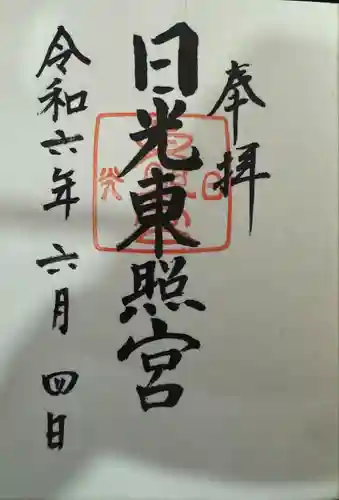 奉拝
日光東照宮
令和六年六月四日
日光